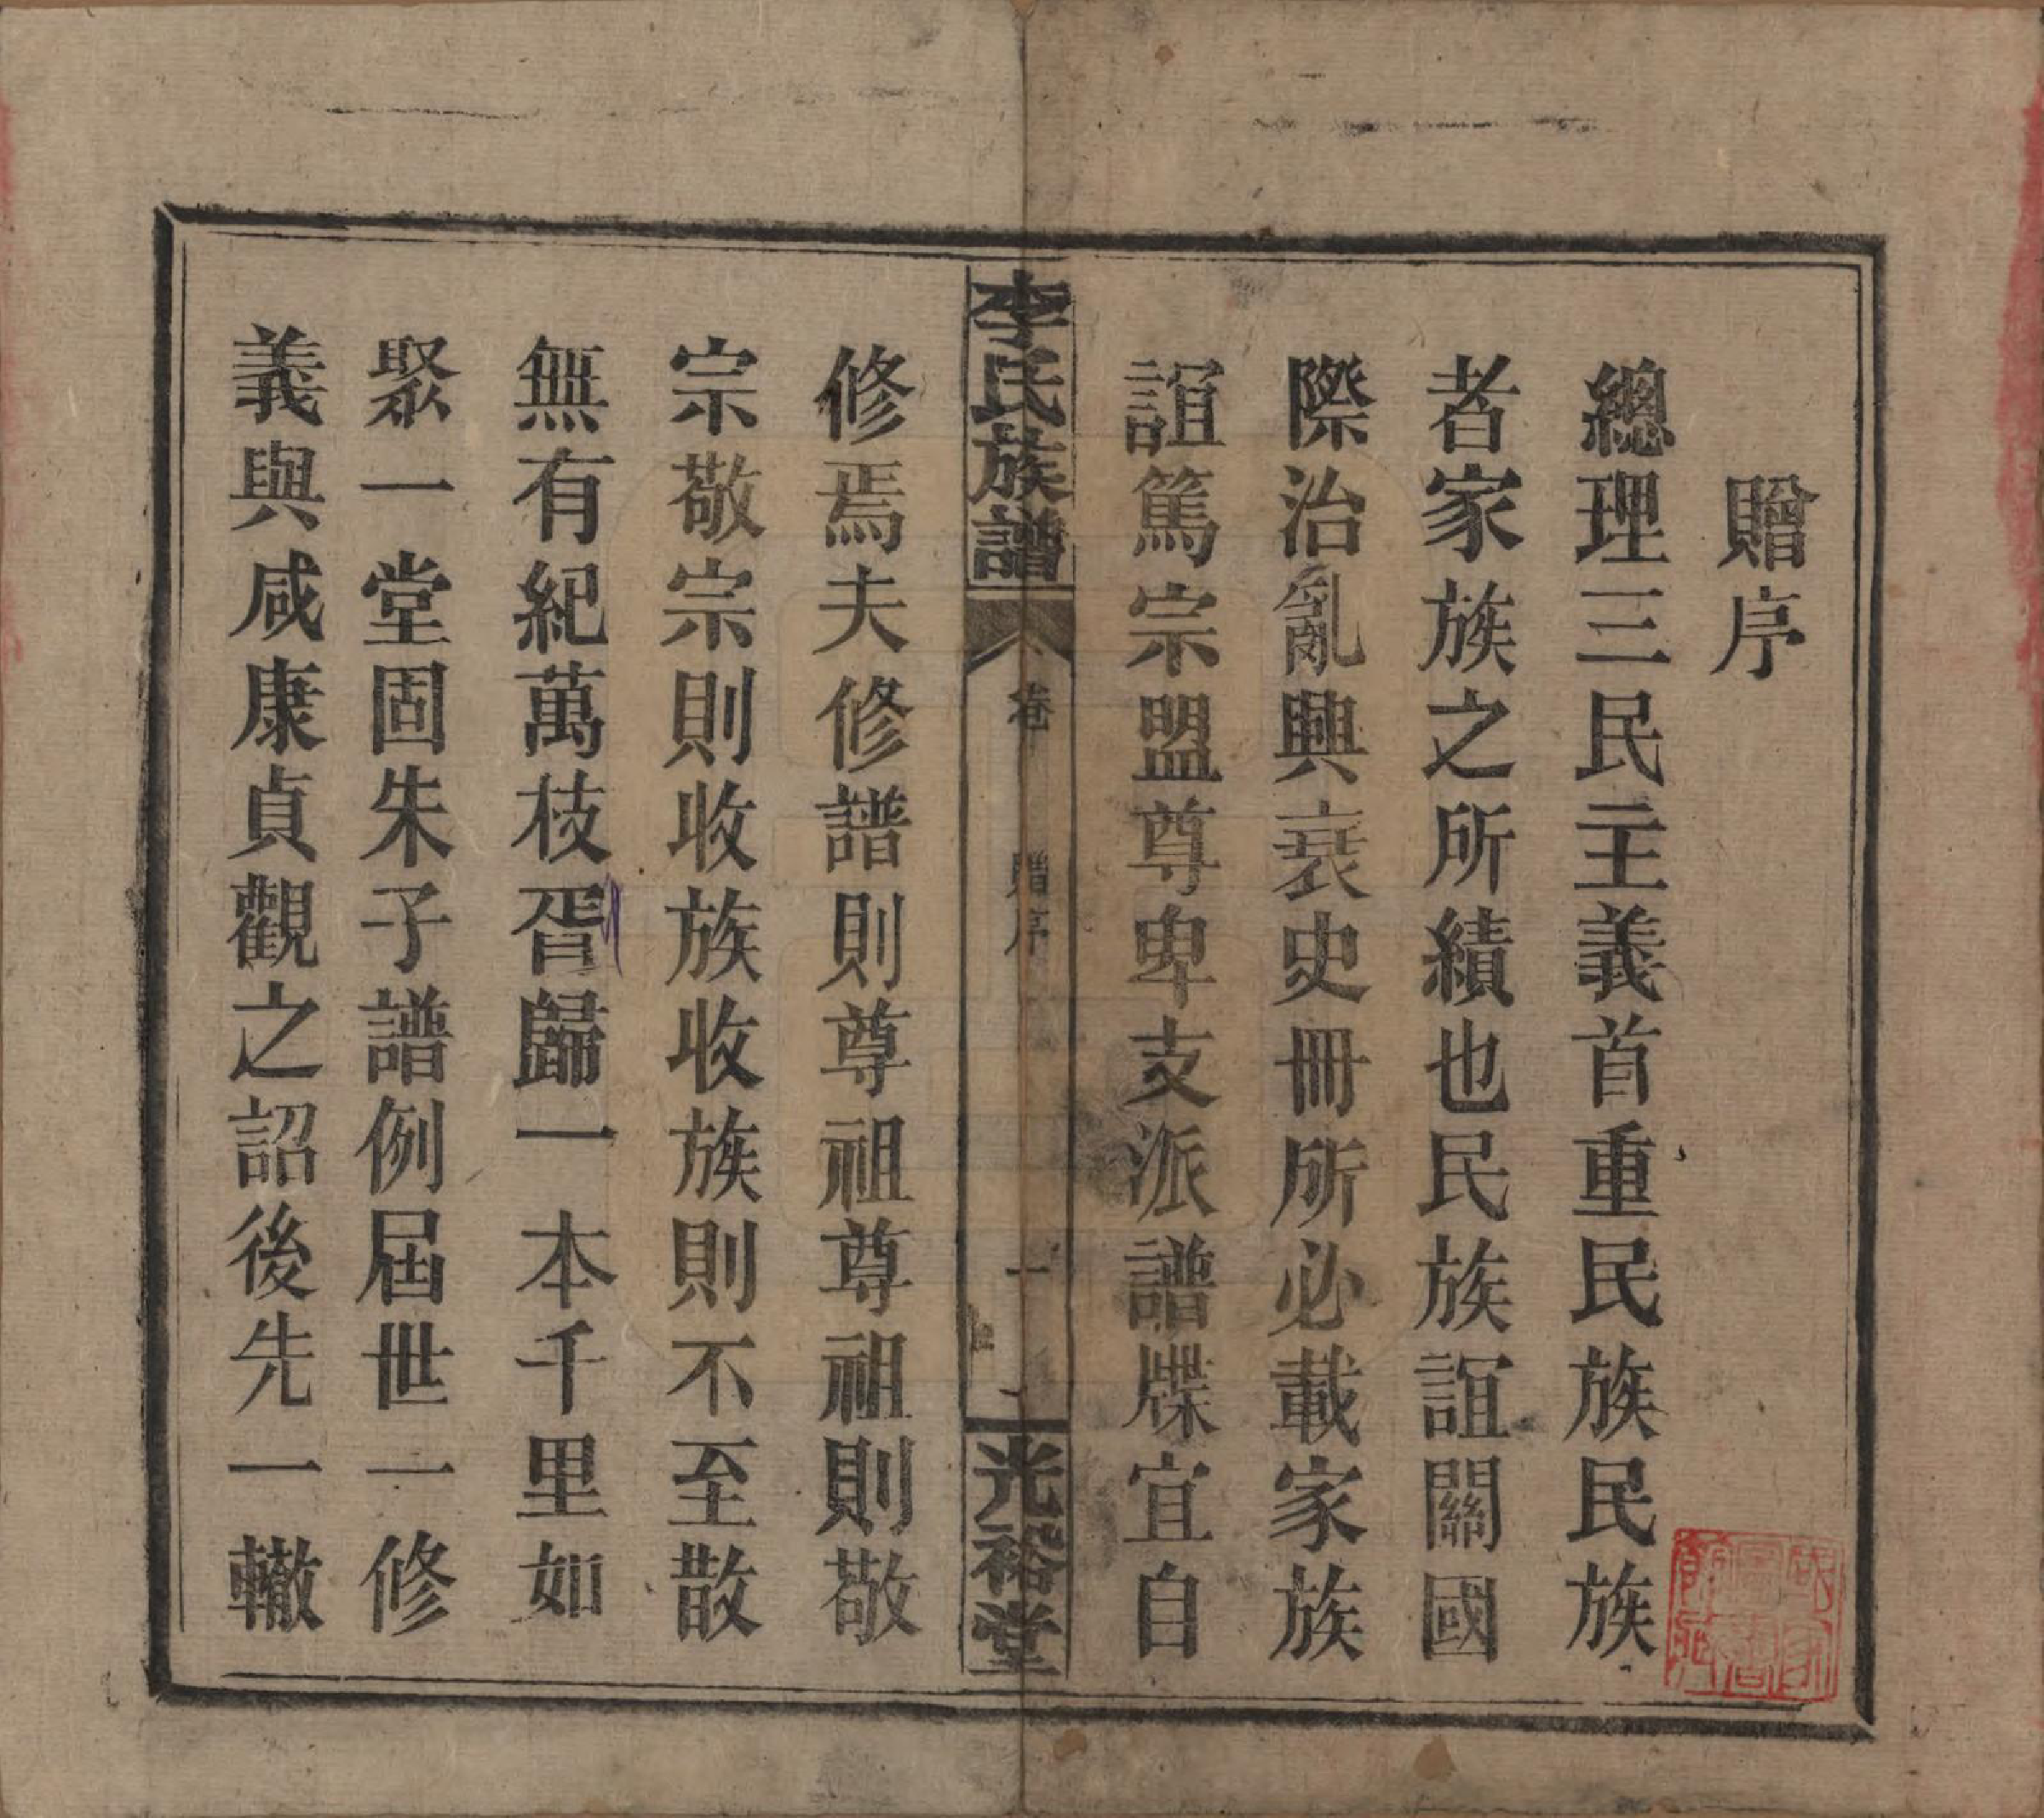 贈序
總理三民主義首重民族民族
者家族之所績也民族誼關國
際治亂興衰史冊所必載家族
誼篤宗盟尊卑支派譜牒宜自
李氏族譜
卷
贈序
一
光裕堂
修焉夫修譜則尊祖尊祖則敬
宗敬宗則收族收族則不至散
無有紀萬枝胥歸一本千里如
聚一堂固朱子譜例屆世一修
義與咸康貞觀之詔後先一轍